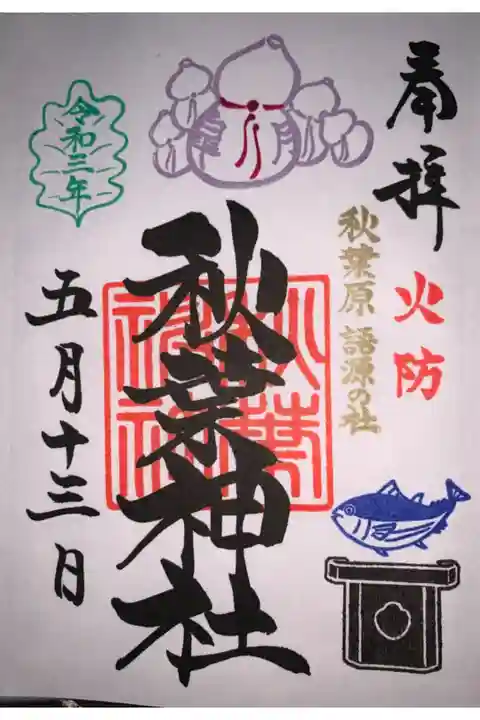 奉拝
火防
秋葉原 語源の社
秋葉神社
秋葉神社
令和三年
五月十三日